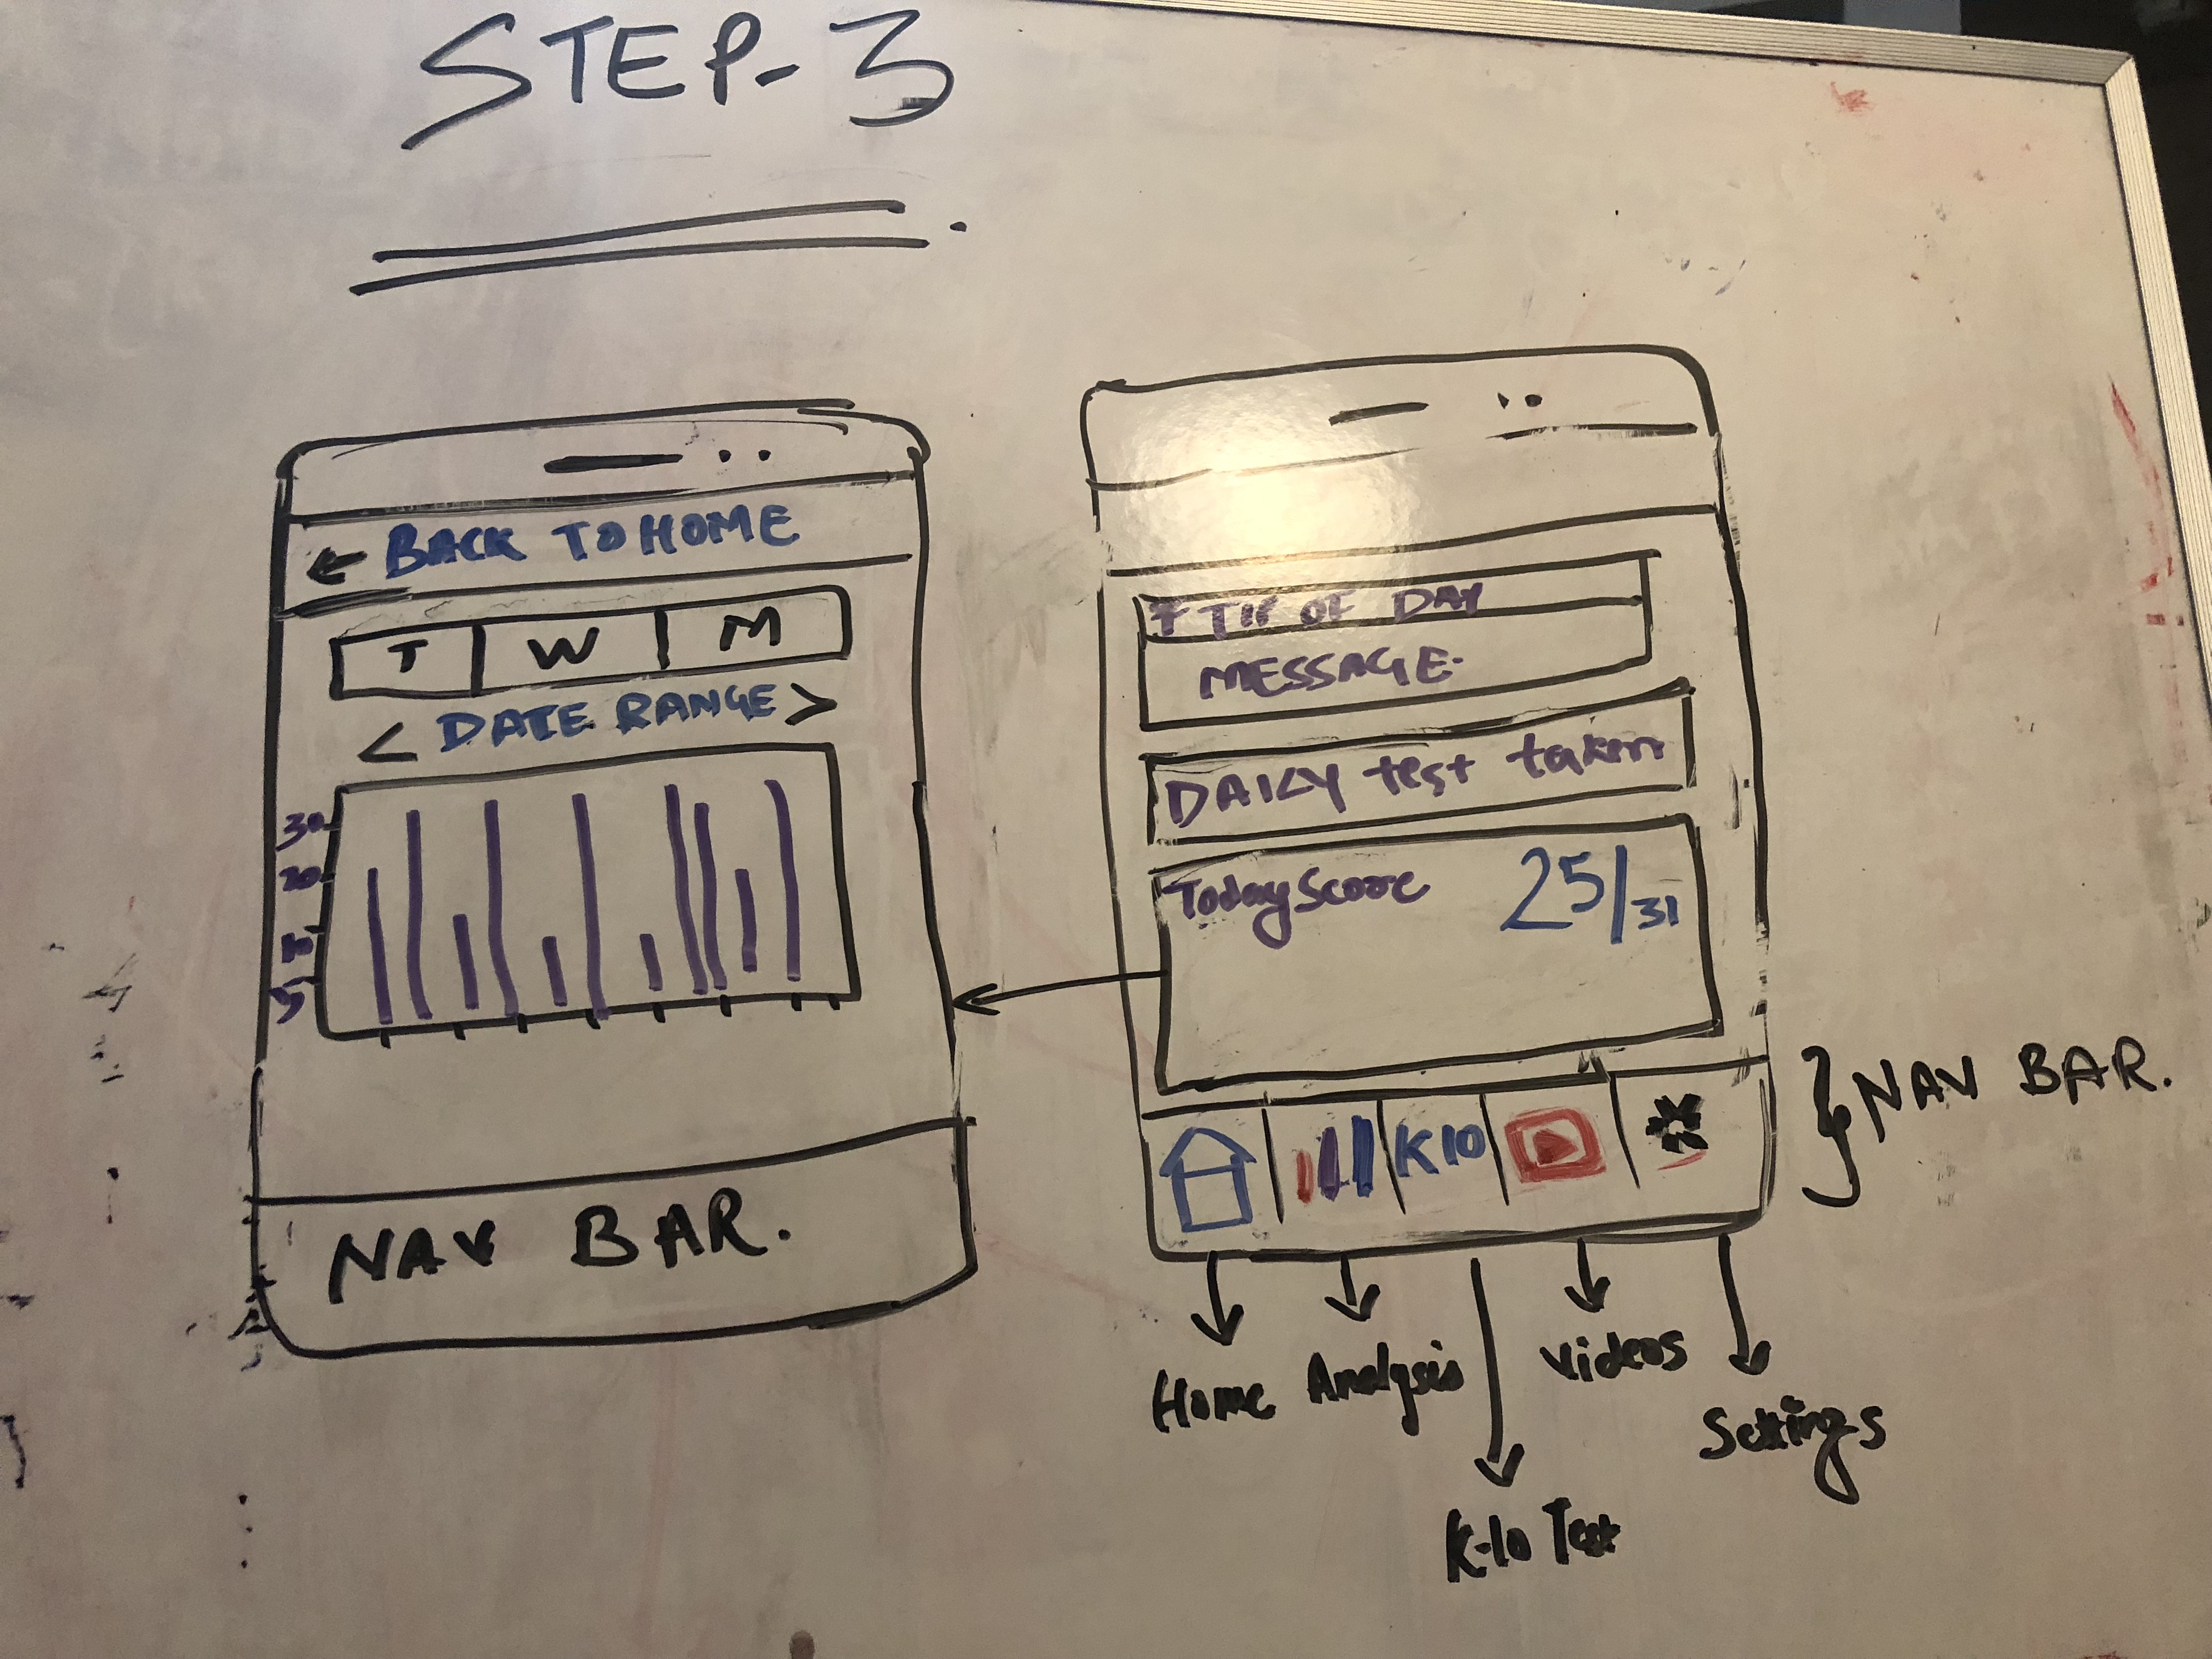 STEP-3
← BACK TO HOME
T W M
< DATE RANGE >
30
20
10
5
NAV BAR.
TIP OF DAY
MESSAGE
DAILY test taken
Today Score 25/31
K10
NAV BAR.
Home Analysis Videos
Settings
K-10 Test